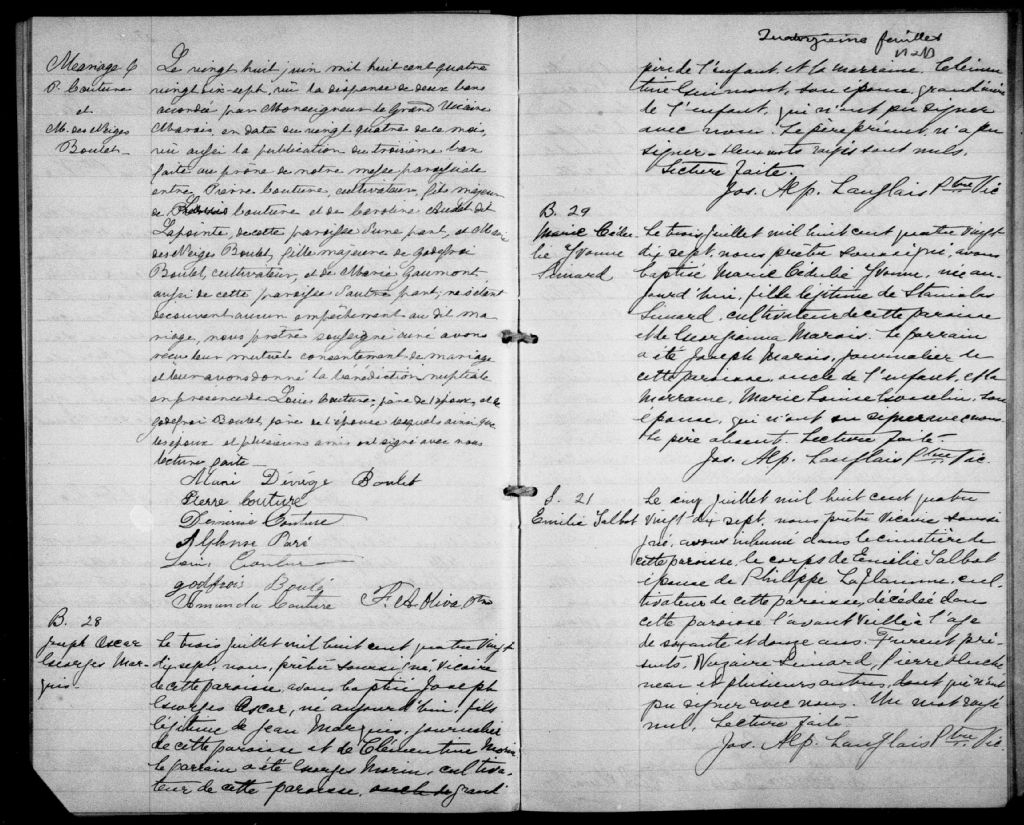 Mariage 6
P. Couture
et
M. des Neiges
Boulet
Le vingt huit juin mil huit cent quatre
vingt dix sept, vu la dispense de deux bans
accordée par Monseigneur le Grand Vicaire
Marois, en date du vingt quatre de ce mois,
vu aussi la publication du troisième ban
faite au prône de notre messe paroissiale
entre Pierre Couture, cultivateur, fils majeur
de Louis Couture et de Caroline Audet dit
Lapointe, de cette paroisse d'une part, et Marie
des Neiges Boulet, fille majeure de Godfroi
Boulet, cultivateur, et de Marie Gaumont
aussi de cette paroisse d'autre part, ne s'étant
découvert aucun empêchement au dit ma
riage, nous prêtre soussigné curé avons
reçu leur mutuel consentement de mariage
et leur avons donné la bénédiction nuptiale
en présence de Louis Couture, père de l'époux, et de
Godfroi Boulet, père de l'épouse lesquels ainsi que
les époux et plusieurs amis ont signé avec nous
lecture faite
Marie Boulet
Pierre Couture
Couture
Alfonse Paré
Louis Couture
godfroi
Amanda Couture F. A. Oliva Ptre
B. 28
Joseph Oscar
Georges Mar-
quis.
Le trois juillet mil huit cent quatre vingt
dix sept, nous, prêtre soussigné, vicaire
de cette paroisse, avons baptisé Joseph
Georges Oscar, né aujourd'hui, fils
légitime de Jean Marquis, journalier
de cette paroisse et de Clémentine Morin
le parrain a été Georges Morin, cultiva-
teur de cette paroisse, oncle de grand
Quatorzième feuillet
père de l'enfant, et la marraine, Clémen
tine Gaumont, son épouse, grand'mère
de l'enfant, qui n'ont pu signer
avec nous. Le père présent, n'a pu
signer. mots rayés sont nuls.
Lecture faite.
Jos. Alp. Langlais Ptre Vic
B. 29
Marie Cédu-
lie Yvonne
Simard
Le trois juillet mil huit cent quatre vingt
dix sept, nous prêtre soussigné, avons
baptisé Marie Cédulie Yvonne, née au-
jourd'hui, fille légitime de Stanislas
Simard, cultivateur de cette paroisse
et de Georgianna Marois. Le parrain
a été Joseph Marois, journalier de
cette paroisse, oncle de l'enfant, et la
marraine, Marie Louise Gosselin, son
épouse, qui n'ont su signer avec nous
Le père absent. Lecture faite
Jos. Alp. Langlais Ptre Vic.
S. 21
Emilie Talbot
Le cinq juillet mil huit cent quatre
vingt dix sept, nous prêtre vicaire soussi
gné, avons inhumé dans le cimetière de
cette paroisse, le corps de Emilie Talbot
épouse de Philippe Laflamme, cul-
tivateur de cette paroisse, décédée dans
cette paroisse l'avant veille à l'âge
de soixante et douze ans. Furent pré-
sents, Nazaire Simard, Pierre
et plusieurs autres, dont qui n'ont
pu signer avec nous. Un mot rayé
nul. Lecture faite
Jos. Alp. Langlais Ptre Vic